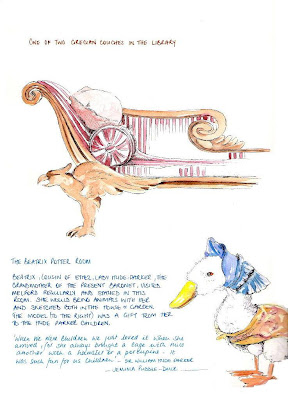 ONE OF TWO GRECIAN COUCHES IN THE LIBRARY
THE BEATRIX POTTER ROOM
BEATRIX, COUSIN OF ETHEL, LADY HYDE-PARKER, THE
GRANDMOTHER OF THE PRESENT BARONET, VISITED
MELFORD REGULARLY AND STAYED IN THIS
ROOM. SHE WOULD BRING ANIMALS WITH HER
AND SKETCHED BOTH IN THE HOUSE & GARDEN.
THE MODEL (TO THE RIGHT) WAS A GIFT FROM HER
TO THE HYDE PARKER CHILDREN.
'When we were children we just loved it when she
arrived, for she always brought a cage with mice
another with a hamster or a porcupine. It
was such fun for us children' - SIR WILLIAM HYDE PARKER
JEMIMA PUDDLE-DUCK